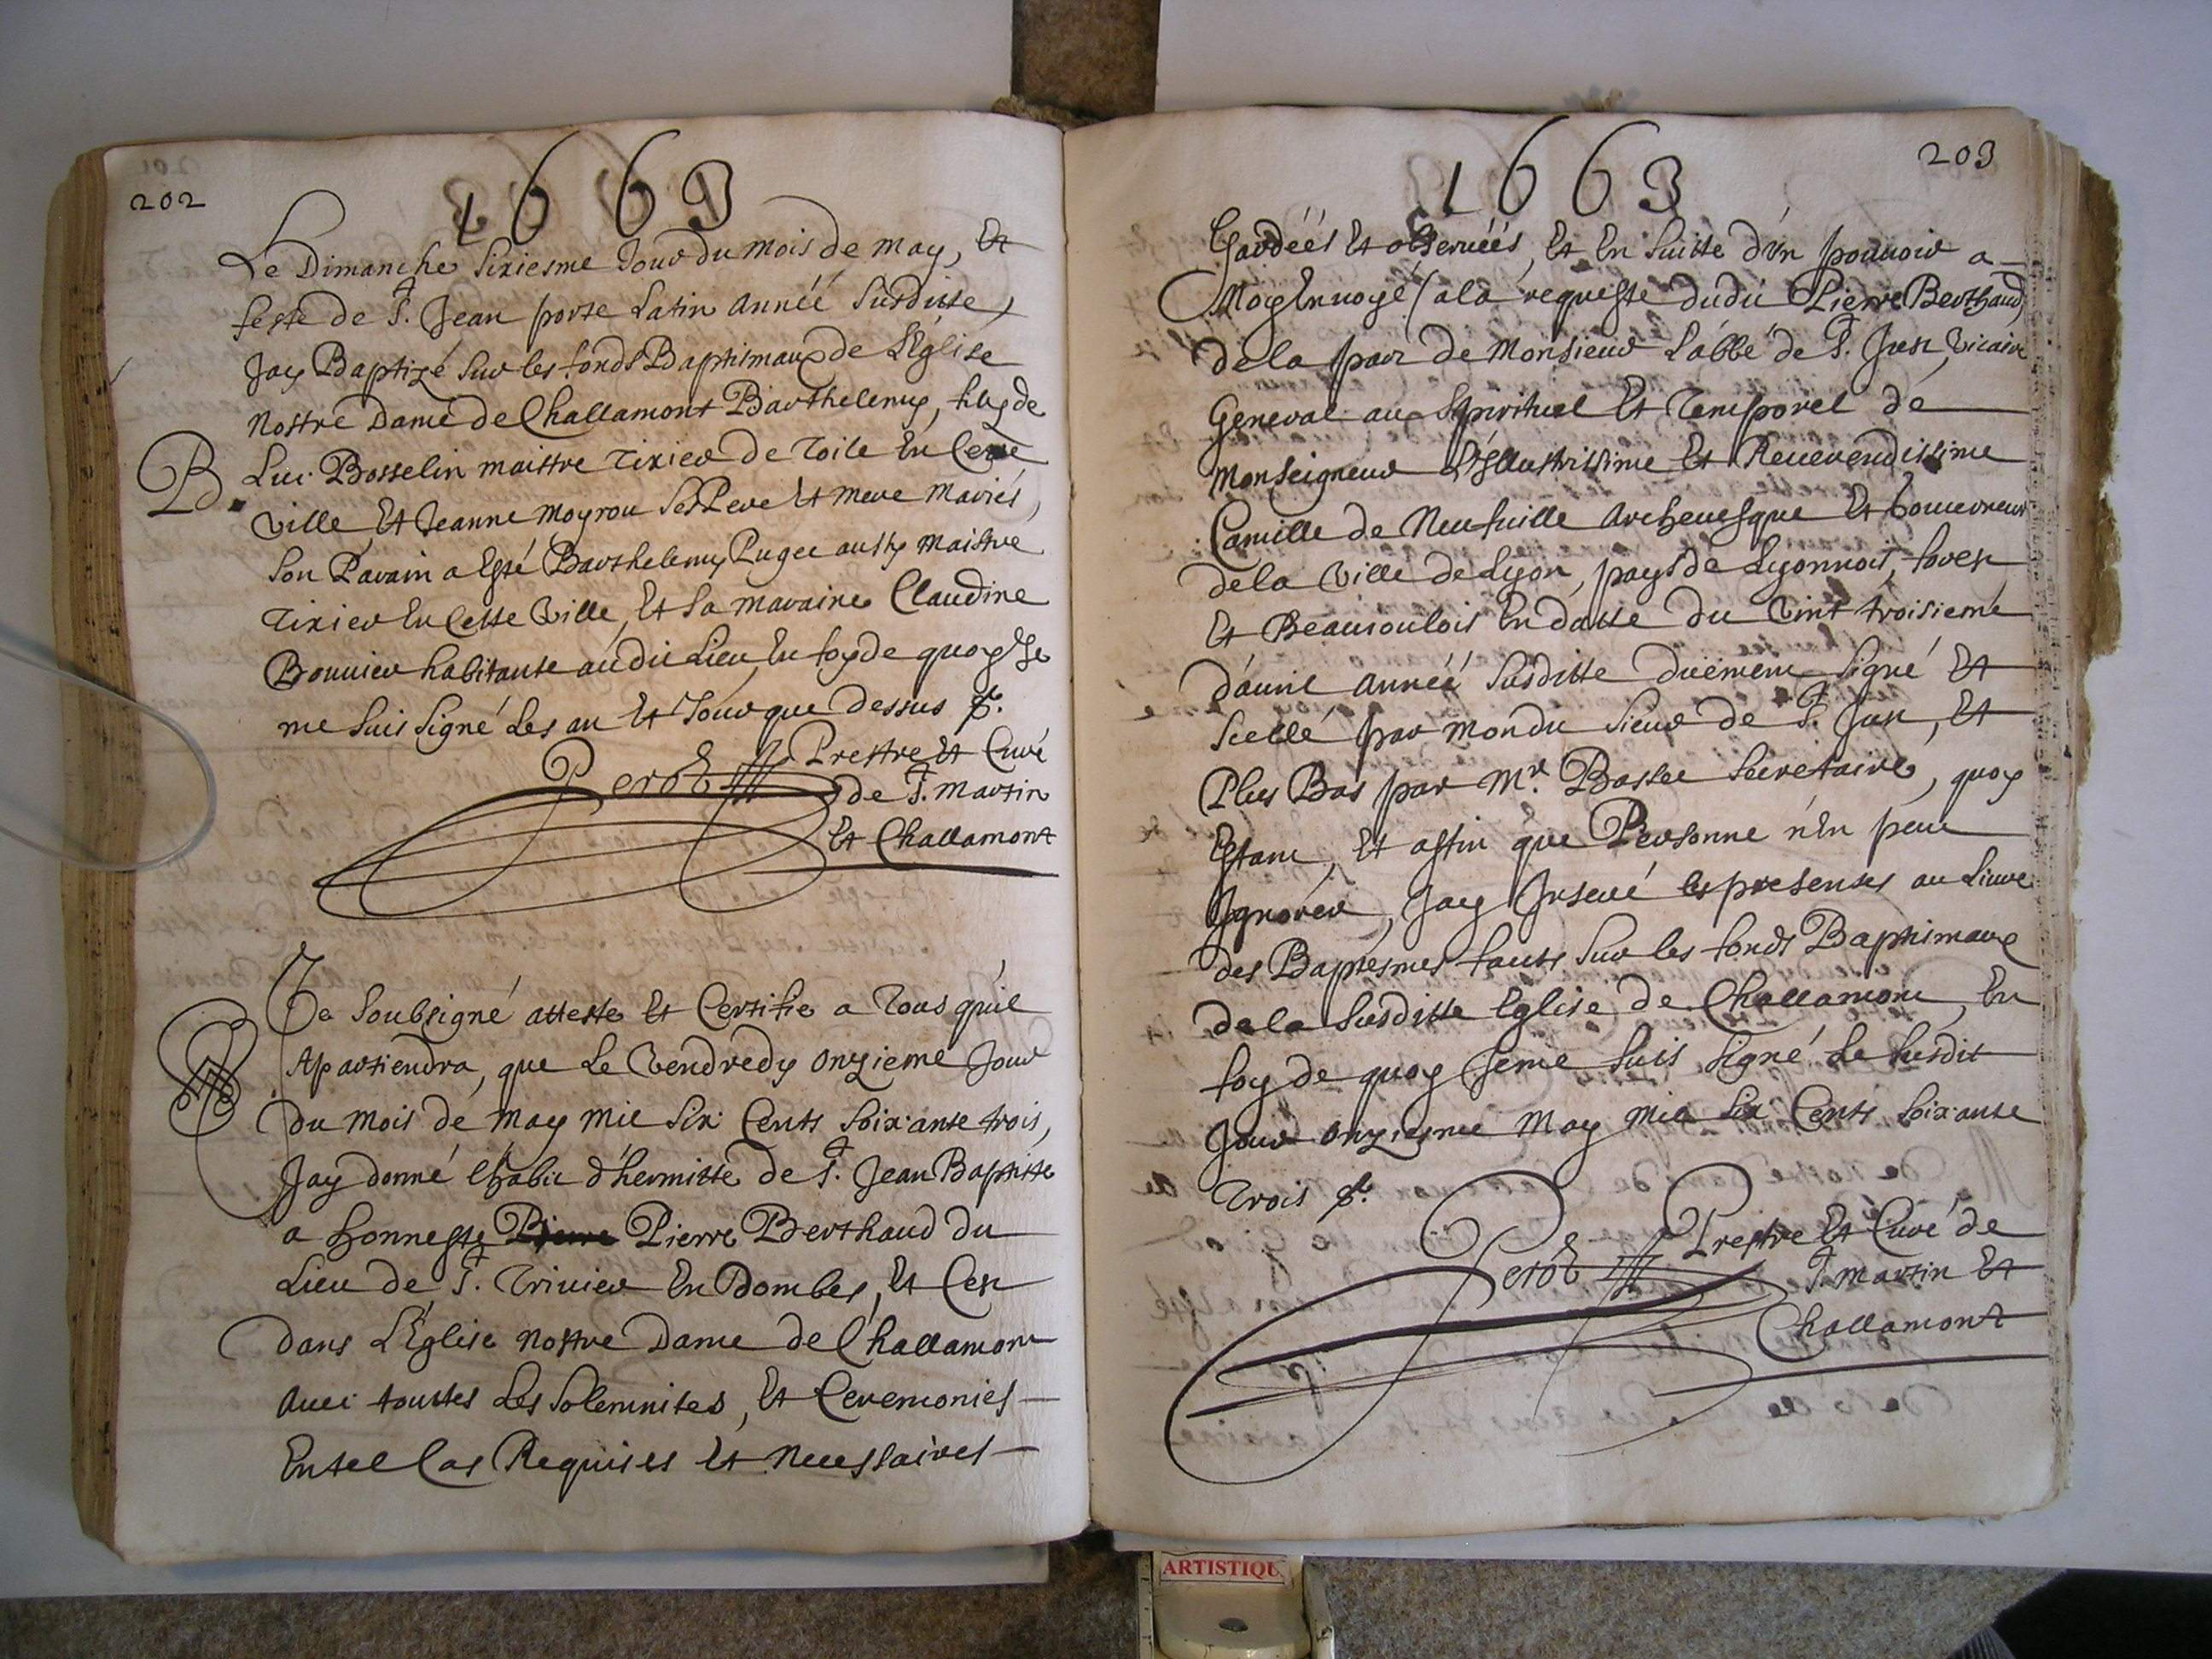 202
1663
Le Dimanche sixiesme Jour du mois de may, Et
feste de St. Jean porte Latin Année susditte,
Jay Baptizé sur les fonds Baptismaux de L'Église
Nostre Dame de Challamont Barthelemy, fils de
B.
Luc Bosselin maistre Tixier de Toile En Cette
Ville, Et Jeanne Moyrou ses Pere Et mere Mariés,
Son Parain a Esté Barthelemy Puget aussy Maistre
Tixier En Cette Ville, Et sa maraine Claudine
Bouvier habitante audit Lieu, En foy de quoy Je
me suis signé Les an Et Jour que dessus
Perot Prestre Et Curé
de St. Martin
Et Challamont
Je soubsigné atteste Et Certifie a Tous qu'il
Apartiendra, que Le Vendredy onzieme Jour
Du Mois de May mil six Cents soixante trois,
Jay donné l'habit d'hermitte de St. Jean Baptiste
a honneste Pierre Pierre Berthaud du
Lieu de St. Trivier En Dombes, Et Ce
dans L'Église Nostre Dame de Challamont
Avec touttes Les solemnites, Et Ceremonies
En tel Cas Requises Et Necessaires
203
1663
Gardéés Et observéés, Et En suitte d'un pouvoir a
Moy Envoyé (a la requeste dudit Pierre Berthaud)
de la part de Monsieur L'abbé de St. Just, Vicaire
General au Spirituel Et Temporel de
Monseigneur L'Illustrissime Et Reverendissime
Camille de Neufville Archevesque Et Gouverneur
de la Ville de Lyon, pays de Lyonnois, forest
Et Beaujoulois En datte du Vint troisieme
d'avril année susditte duëment signé Et
scellé par mondit sieur de St. Just, Et
Plus Bas par Mr. Basset secretaire, quoy
Estant, Et affin que Personne n'En peut
Ignorer, Jay Inseré les presentes au Livre
des Baptesmes faicts sur les fonds Baptismaux
de la susditte Eglise de Challamont, En
foy de quoy Je me suis signé Le susdit
Jour onziesme May mil six Cents soixante
Trois
Perot Prestre Et Curé de
St. Martin Et
Challamont
ARTISTIQU